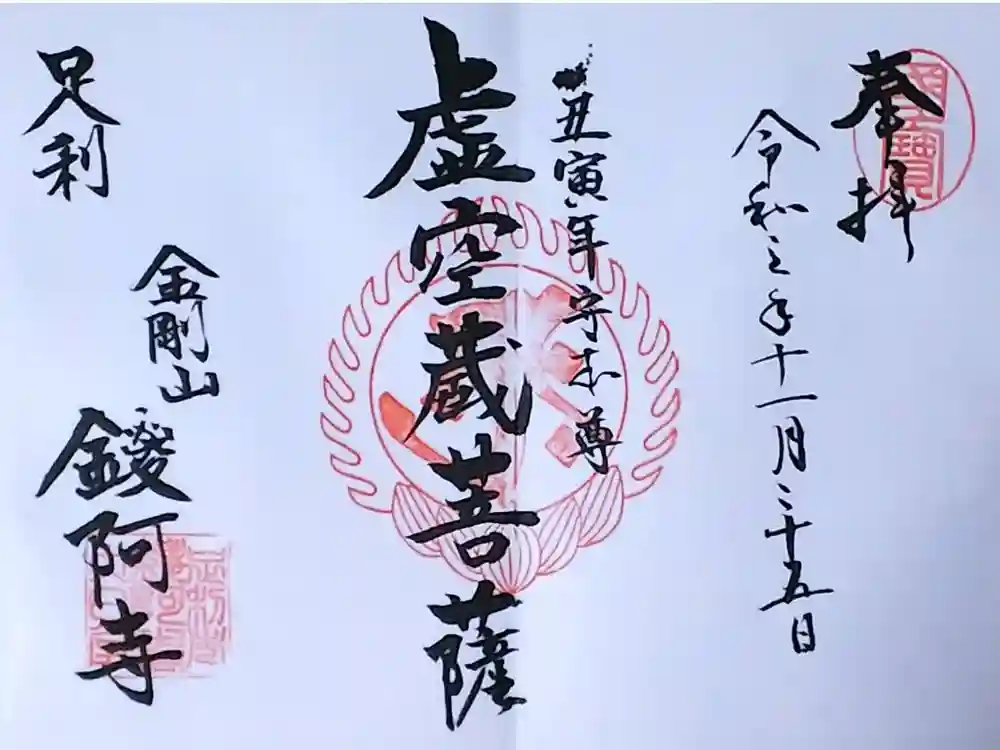 奉拝
令和三年十一月二十五日
丑寅年守本尊
虚空蔵菩薩
足利
金剛山
鑁阿寺